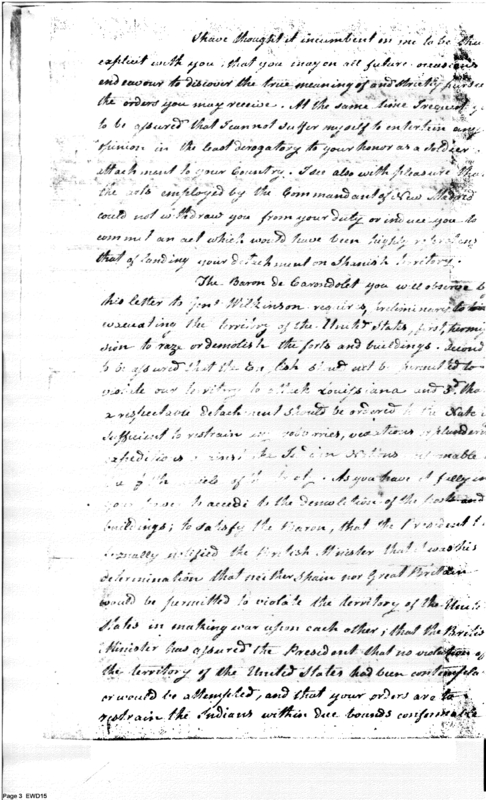 I have thought it incumbent on me to be thus
explicit with you, that you may on all future occasions
endeavour to discover the true meaning of and strictly pursue
the orders you may receive. At the same time I request
to be assured that I cannot suffer myself to entertain any
opinion in the least derogatory to your honor as a Soldier
attachment to your Country. I see also with pleasure that
the arts employed by the Commandant of New Madrid
could not withdraw you from your duty or induce you to
commit an act which would have been highly
that of landing your detachment on Spanish territory.
The Baron de Carondolet you will observe by
his letter to Genl Wilkinson requires, preliminary to his
evacuating the territory of the United States, first, permis
sion to raze or demolish the forts and buildings. Second
to be assured that the English should not be permitted to
violate our territory to attack Louisiana and 3d. tha
a respectable detachment should be ordered to the Natc
sufficient to restrain any robberies, vexations or plundering
expeditions against the Indian Nations
of the article of the treaty. As you have it fully in
your power to accede to the demolition of the forts and
buildings; to satisfy the Baron, that the President
formally notified the British Minister that it was his
determination that neither Spain nor Great Britain
would be permitted to violate the territory of the United
States in making war upon each other; that the British
Minister has assured the President that no violation of
the territory of the United States had been contempla
or would be attempted, and that your orders are to
restrain the Indians within due bounds conformable
Page 3 EWD15